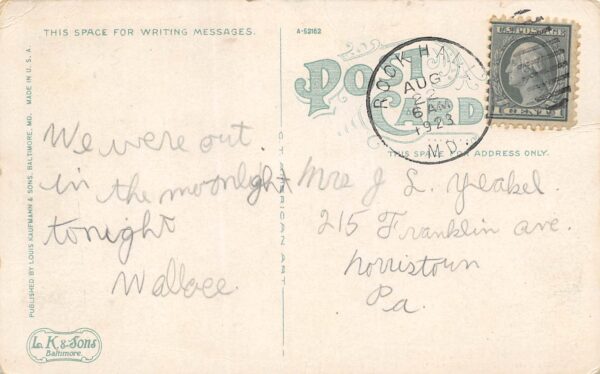 THIS SPACE FOR WRITING MESSAGES.
A-52162
POST CARD
ROCK HALL
AUG
22
6 AM
1923
MD.
U.S. POSTAGE
CENTS
THIS SPACE FOR ADDRESS ONLY.
We were out
in the moonlight
tonight
Wallace.
Mrs J L. Yeakel.
215 Franklin ave.
Norristown
Pa.
PUBLISHED BY LOUIS KAUFMANN & SONS, BALTIMORE, MD. MADE IN U.S.A.
AMERICAN ART
L. K & Sons
Baltimore.